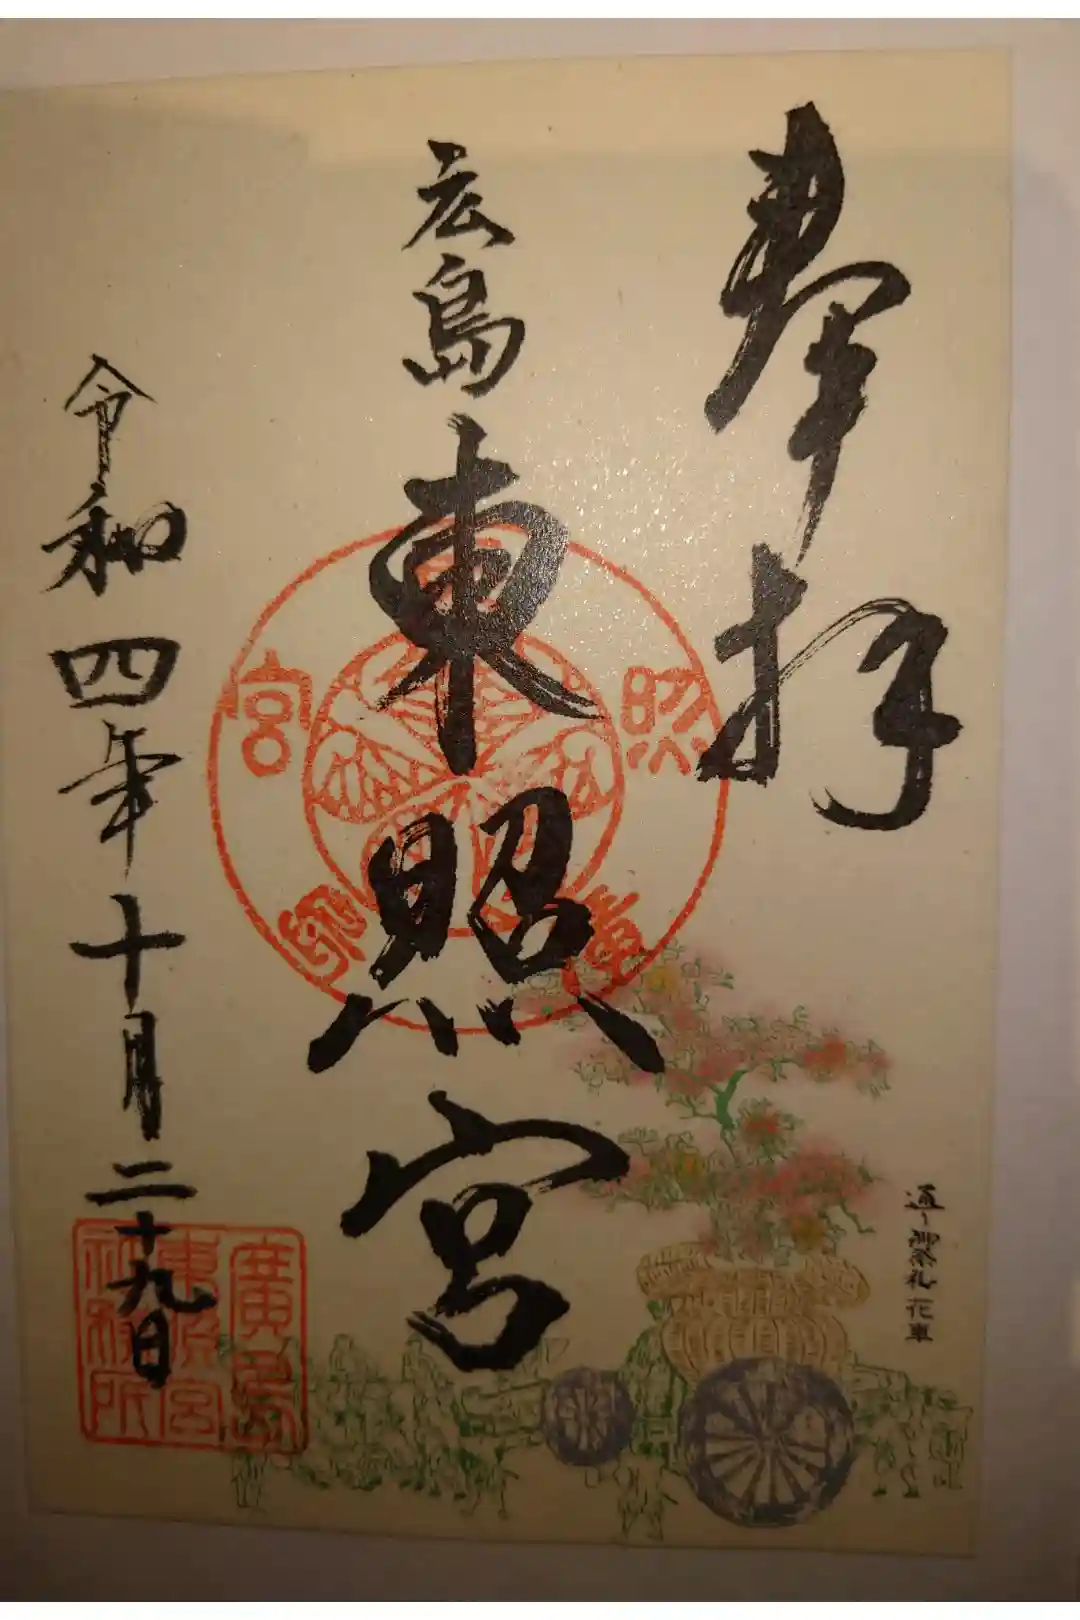 奉拝
広島東照宮
令和四年十月二十九日
通り御祭礼 花車
廣島
東照宮
社務所